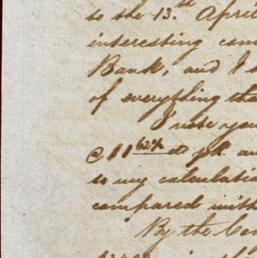 to the 13.th April
interesting com
Bank, and I
of everything tha
I note you
@ $1 62½
to my calculatio
compared with
By the